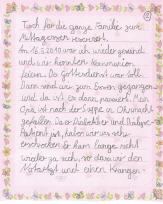 Tisch für die ganze Familie zum
Mittagessen reserviert.
Am 16.5.2010 war ich wieder gesund
und wir konnten Kommunion
feiern. Der Gottesdienst war toll.
Dann sind wir zum Essen gegangen
und da ist es dann passiert. Mein
Opa ist nach der Suppe in Ohnmacht
gefallen. Da er Diabetiker und Dialyse-
patient ist, haben wir uns sehr
erschrocken. Er kam lange nicht
wieder zu sich, so dass wir den
Notarzt und einen Kranken-